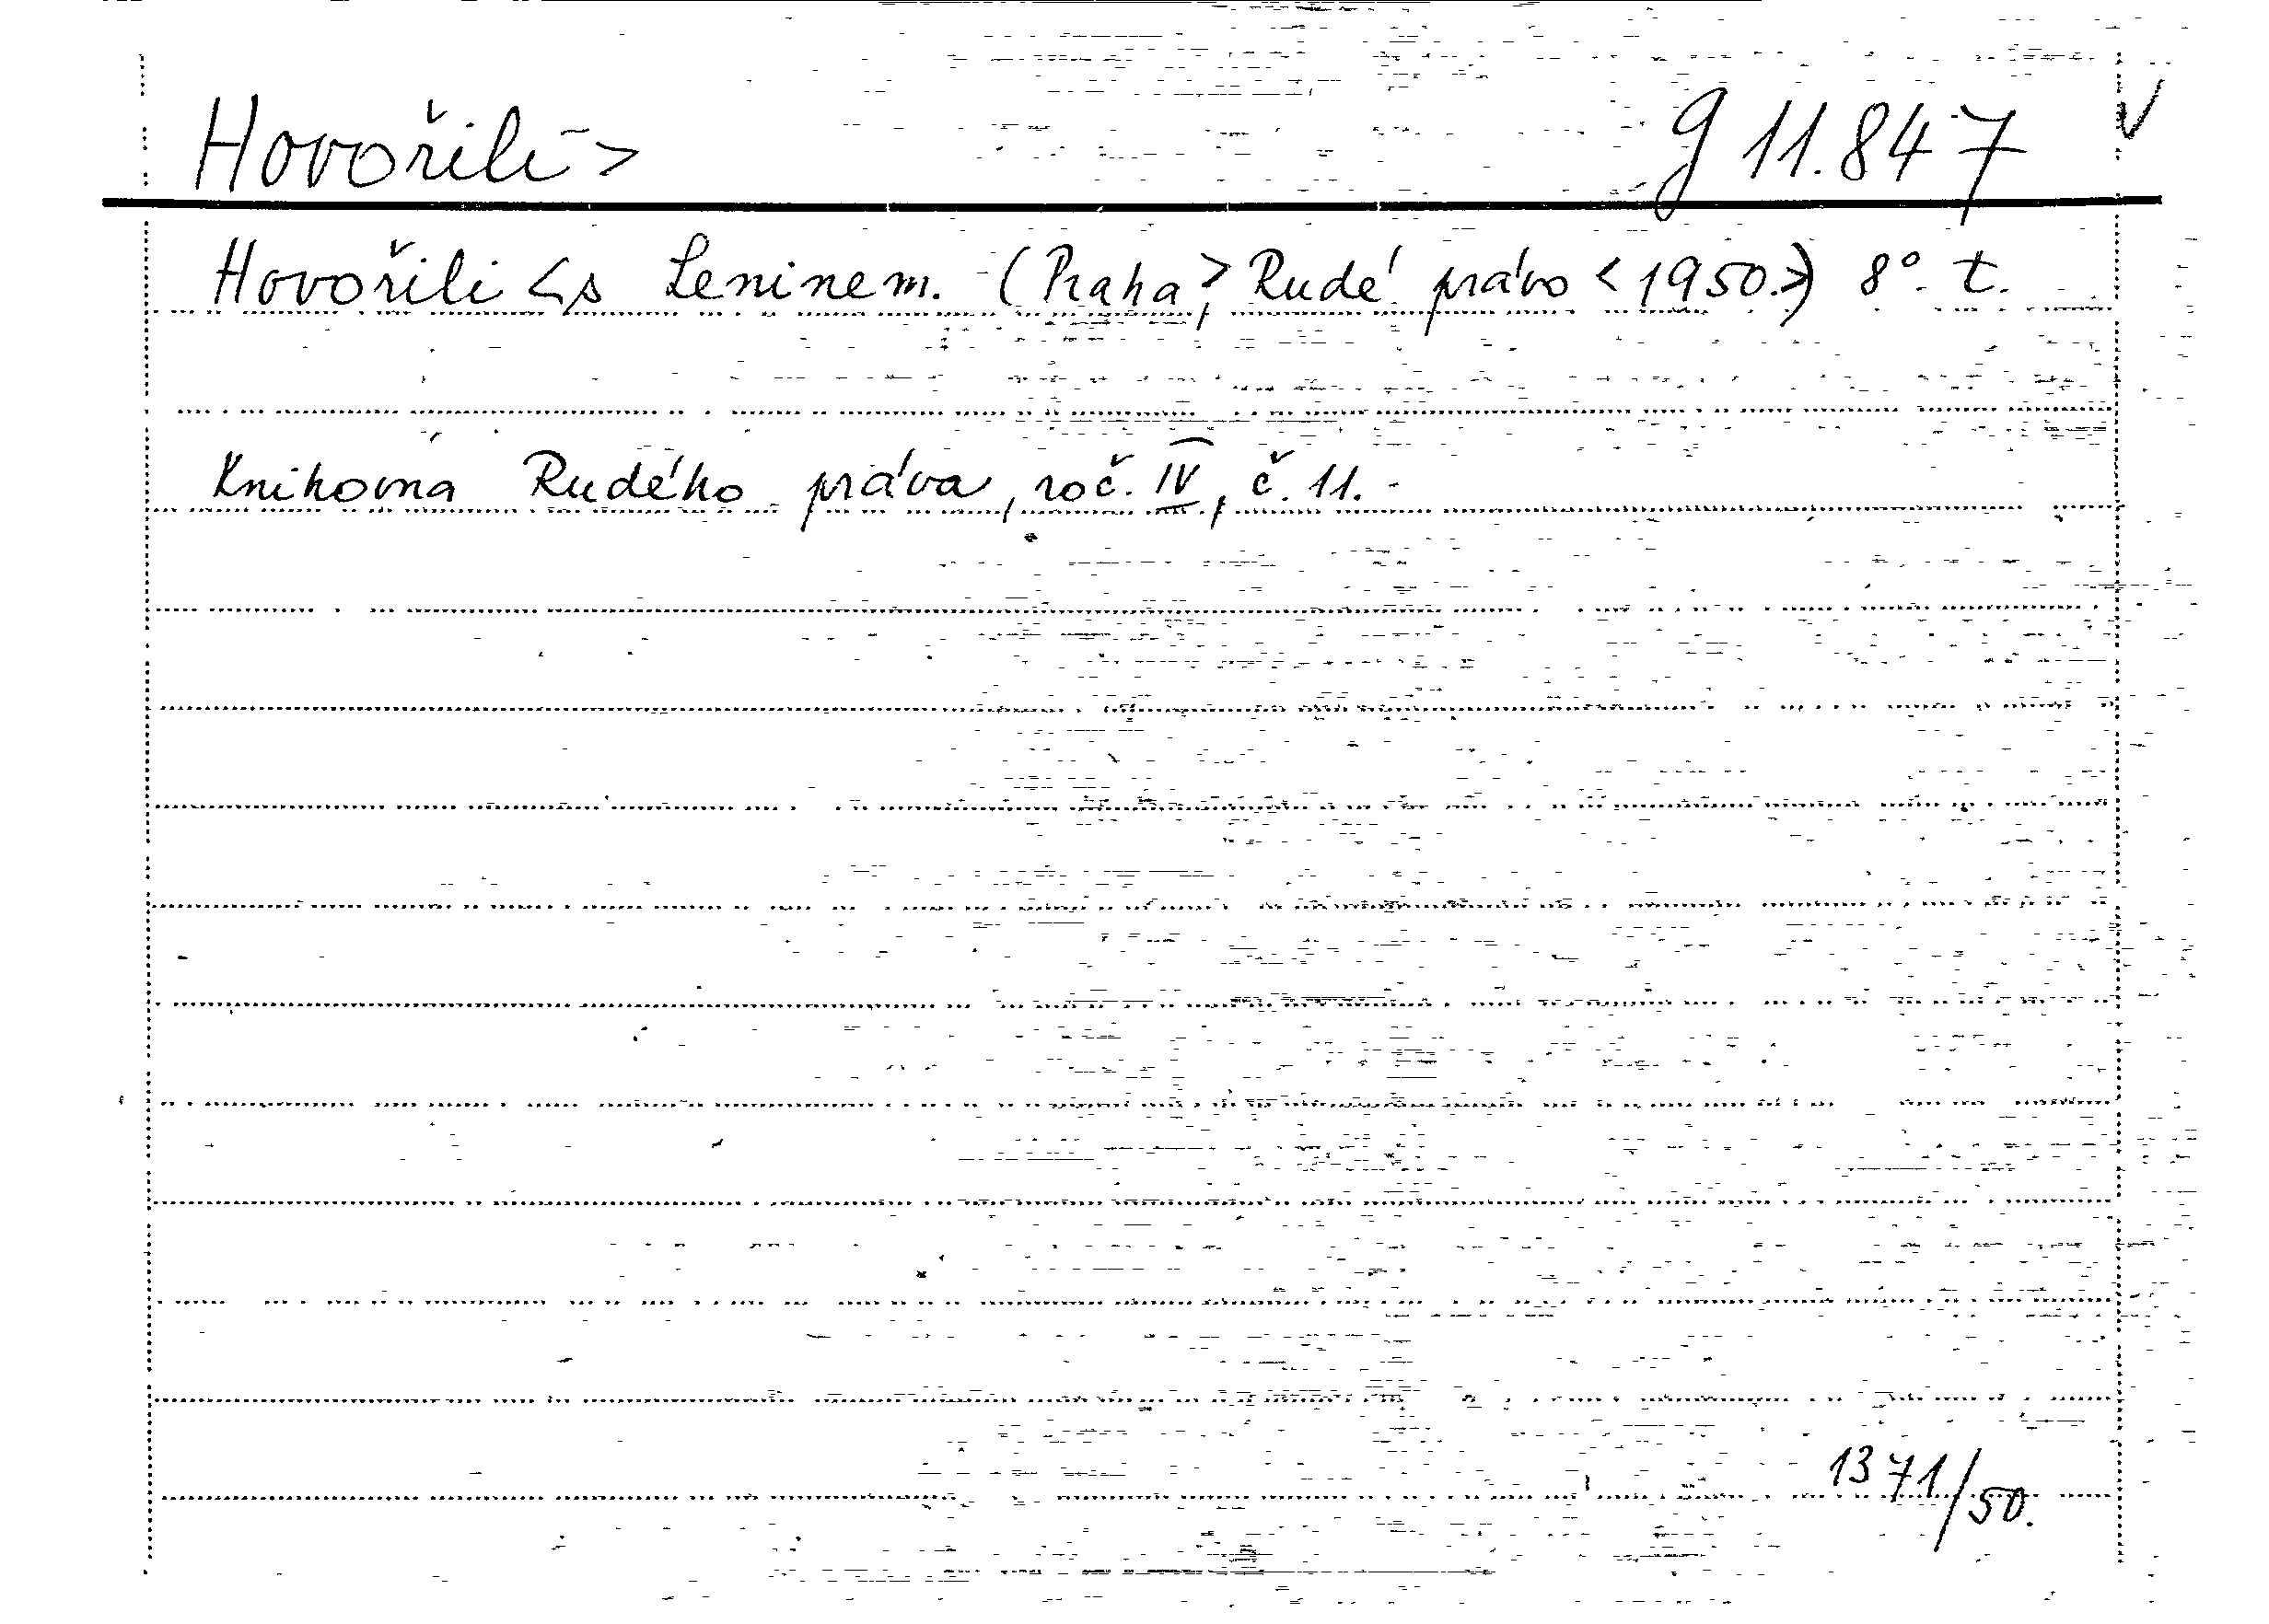 Hovořili > g 11.847 V
Hovořili <s Leninem. (Praha>, Rudé právo <1950.>) 8°. t.
Knihovna Rudého práva, roč. IV, č. 11. -
1371/50.